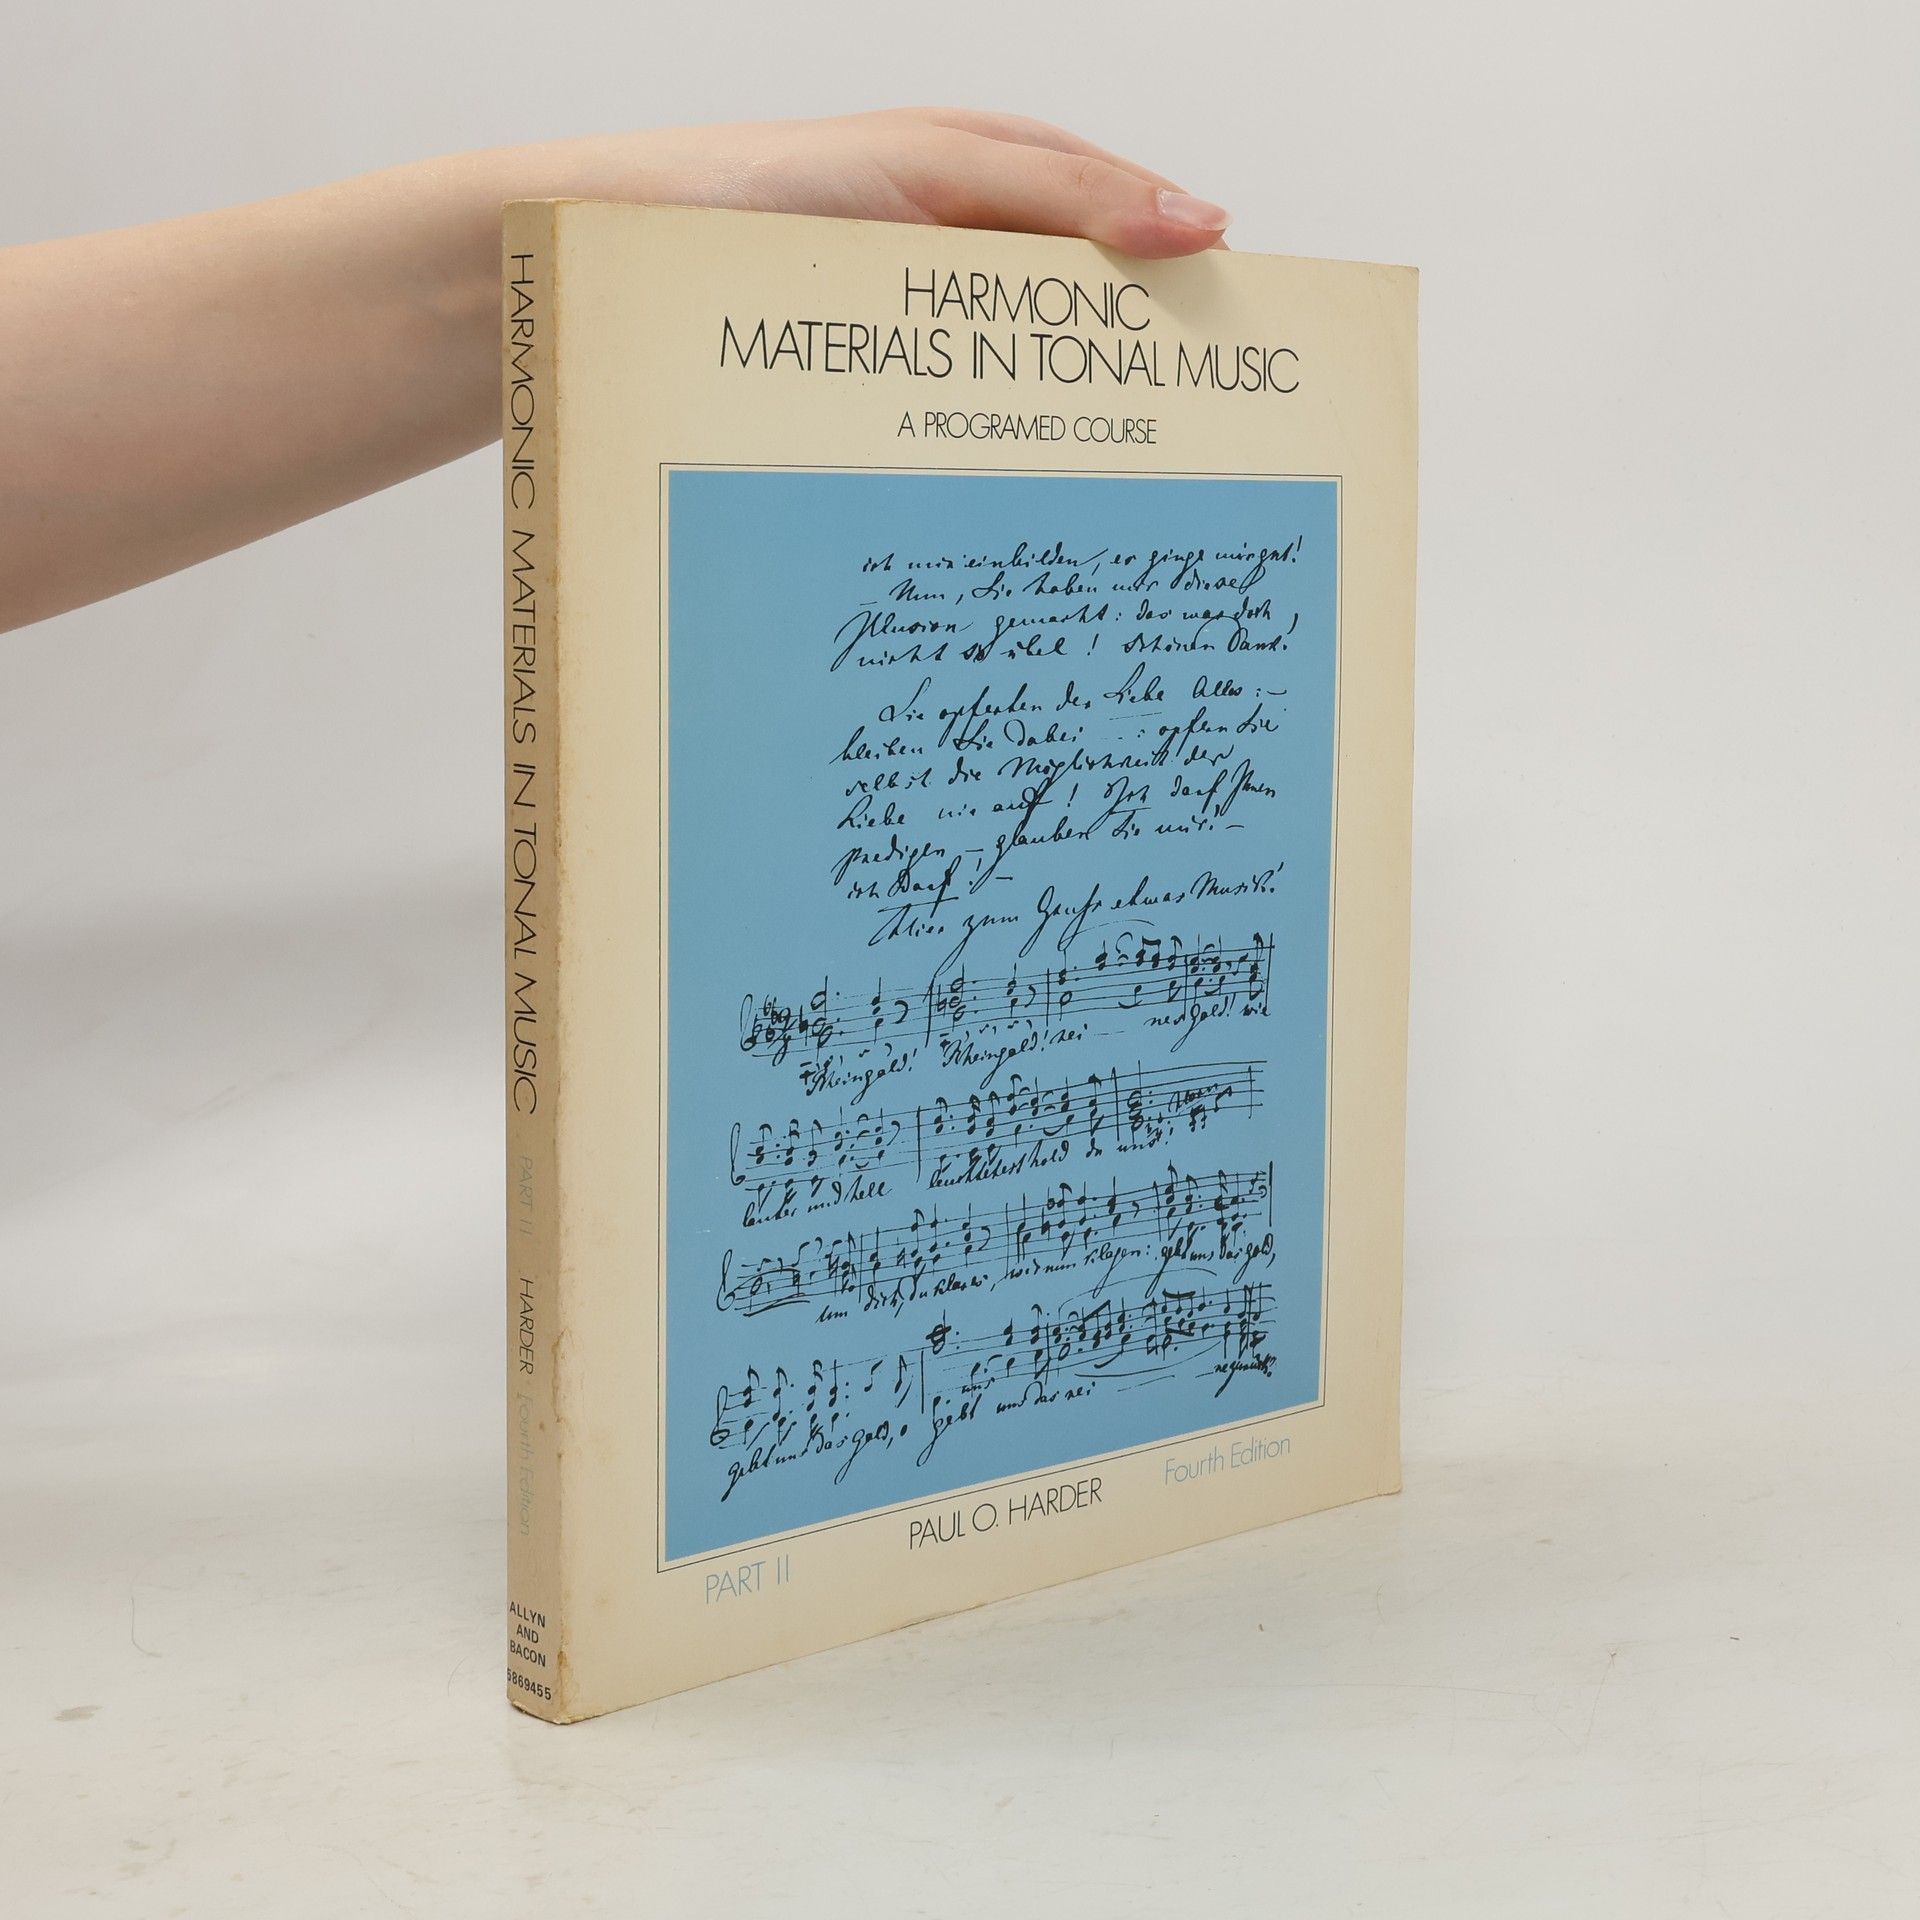 HARMONIC MATERIALS IN TONAL MUSIC PART II HARDER Fourth Edition
ALLYN
AND
BACON
6869455
HARMONIC
MATERIALS IN TONAL MUSIC
A PROGRAMED COURSE
ich mir einbilden, es ginge mir gut!
– Nun, Sie haben mir diese
Illusion gemacht: das war doch
nicht so übel! Schönen Dank!
Sie opferten der Liebe Alles: –
bleiben Sie dabei – : opfern Sie
selbst die Möglichkeit der
Liebe nie auf! Ich darf Ihnen
predigen – glauben Sie mir! –
ich darf! –
Hier zum Gruß etwas Musik!
Rheingold! Rheingold! rei – nes gold! wie
lauter und hell leuchtetest hold du uns!
um dich, du klares, wir nun klagen: gebt uns das gold,
gebt uns das gold, o gebt uns das rei
PAUL O. HARDER
Fourth Edition
PART II